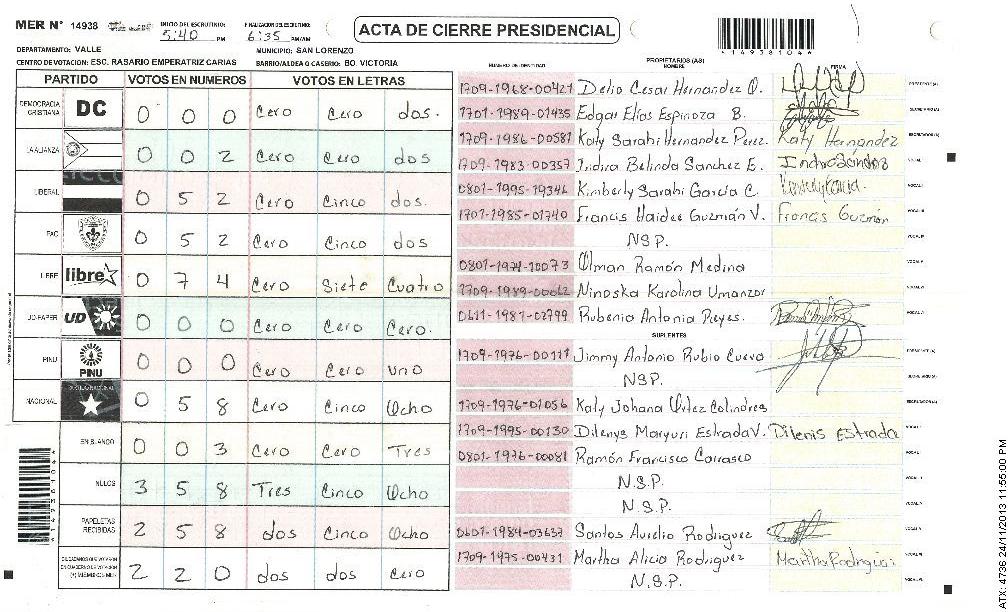 MER N° 14938
INICIO DEL ESCRUTINIO: 5:40 PM
FINALIZACION DEL ESCRUTINIO: 6:35 PM/AM
ACTA DE CIERRE PRESIDENCIAL
*14938104*
DEPARTAMENTO: VALLE
MUNICIPIO: SAN LORENZO
CENTRO DE VOTACION: ESC. RASARIO EMPERATRIZ CARIAS
BARRIO/ALDEA O CASERIO: BO. VICTORIA
PARTIDO VOTOS EN NUMEROS VOTOS EN LETRAS
DEMOCRACIA CRISTIANA DC 0 0 0 Cero Cero dos.
LA ALIANZA 0 0 2 Cero Cero dos
LIBERAL 0 5 2 Cero Cinco dos.
PAC 0 5 2 Cero Cinco dos
LIBRE libre 0 7 4 Cero Siete Cuatro
UD-FAPER UD 0 0 0 Cero Cero Cero.
PINU PINU 0 0 0 Cero Cero uno
NACIONAL 0 5 8 Cero Cinco Ocho
EN BLANCO 0 0 3 Cero Cero Tres
NULOS 3 5 8 Tres Cinco Ocho
PAPELETAS RECIBIDAS 2 5 8 dos Cinco Ocho
CIUDADANOS QUE VOTARON EN CUADERNO DE VOTACION (+) MIEMBROS MER 2 2 0 dos dos Cero
NUMERO DE IDENTIDAD PROPIETARIOS (AS) NOMBRE FIRMA
1709-1968-00421 Delio Cesar Hernandez O. PRESIDENTE (A)
1701-1989-01435 Edgar Elías Espinoza B. SECRETARIO (A)
1709-1986-00581 Katy Sarahi Hernandez Perez. Katy Hernandez ESCRUTADOR (A)
1709-1983-00357 Indira Belinda Sanchez E.
0801-1995-19346 Kimberly Sarahi García C.
1701-1985-01740 Francis Haidee Guzmán V. Francis Guzmán
NSP.
0801-1974-10073 Olman Ramón Medina
1709-1989-00662 Ninoska Karolina Umanzor
0611-1981-02799 Rubenia Antonia Reyes.
SUPLENTES
1709-1976-00111 Jimmy Antonio Rubio Cueva PRESIDENTE (A)
NSP. SECRETARIO (A)
1709-1976-01056 Katy Johana Ortez Colindres ESCRUTADOR (A)
1709-1995-00130 Dilenys Maryuri Estrada V. Dilenis Estrada
0801-1976-00081 Ramón Francisco Carrasco
N.S.P.
N.S.P.
0601-1984-03637 Santos Aurelio Rodriguez
1709-1975-00431 Martha Alicia Rodriguez Martha Rodriguez
N.S.P.
*14938104*
ATX: 4736 24/11/2013 11:55:00 PM